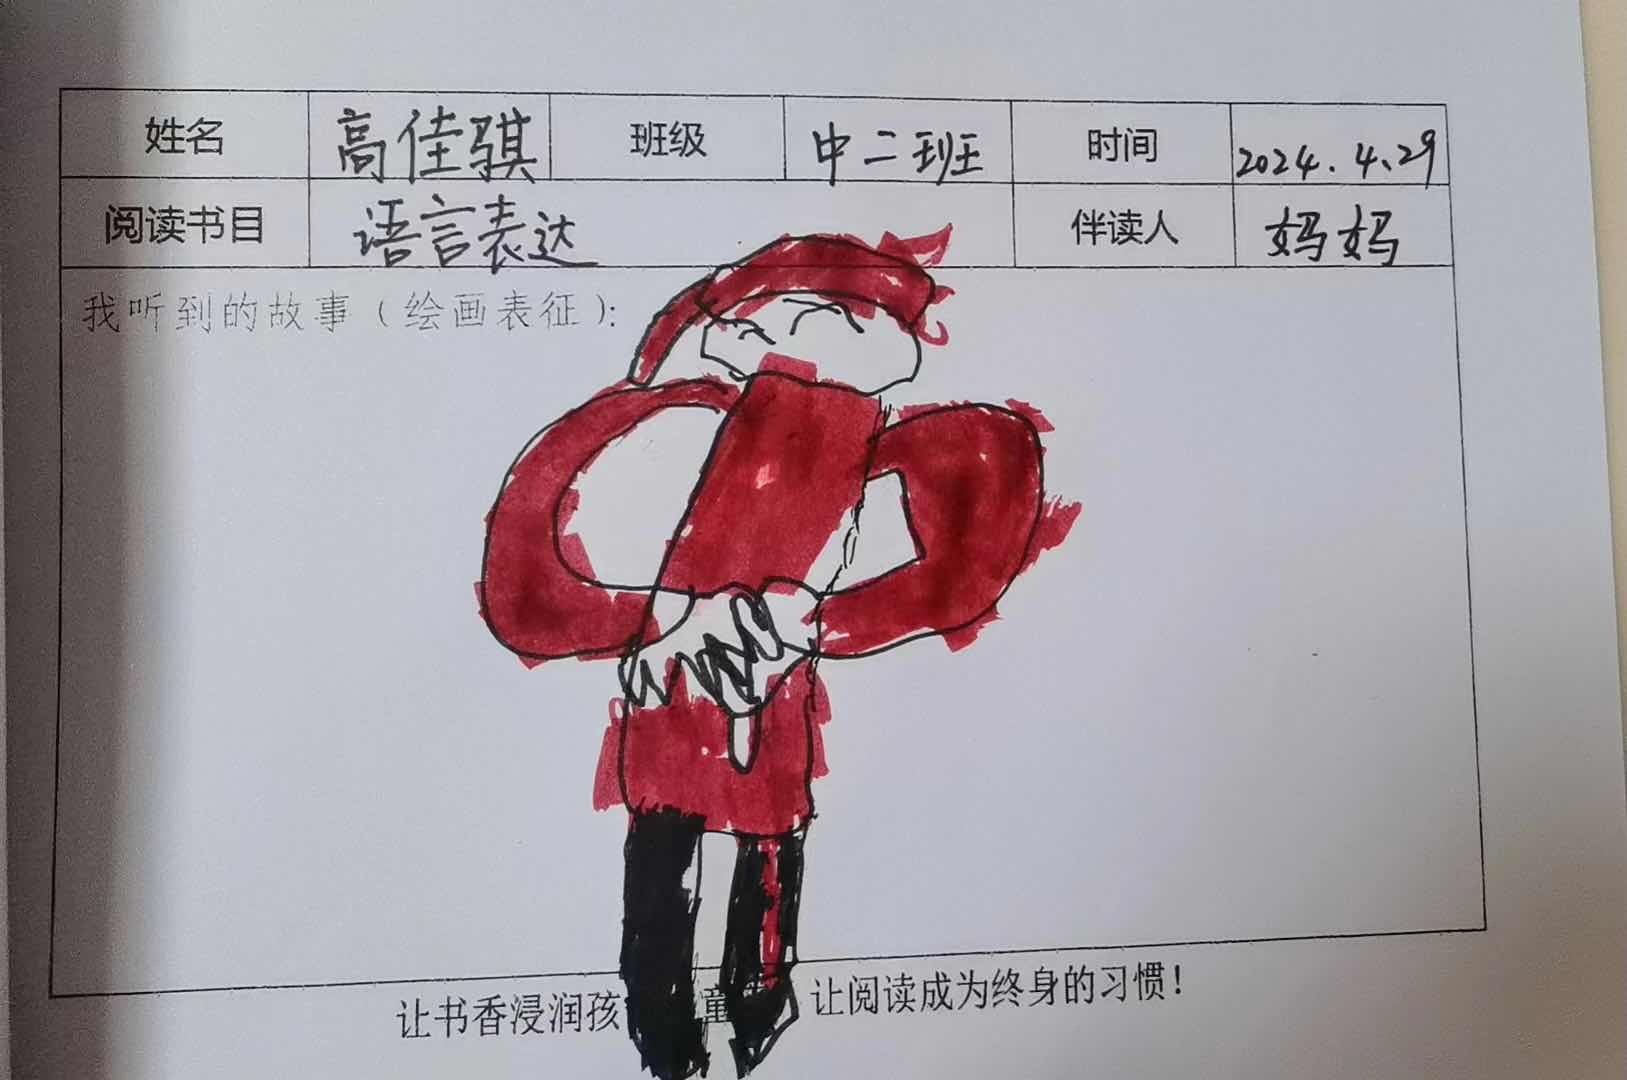 姓名 高佳骐 班级 中二班 时间 2024.4.29
阅读书目 语言表达 伴读人 妈妈
我听到的故事（绘画表征）：
让书香浸润孩 童 让阅读成为终身的习惯！